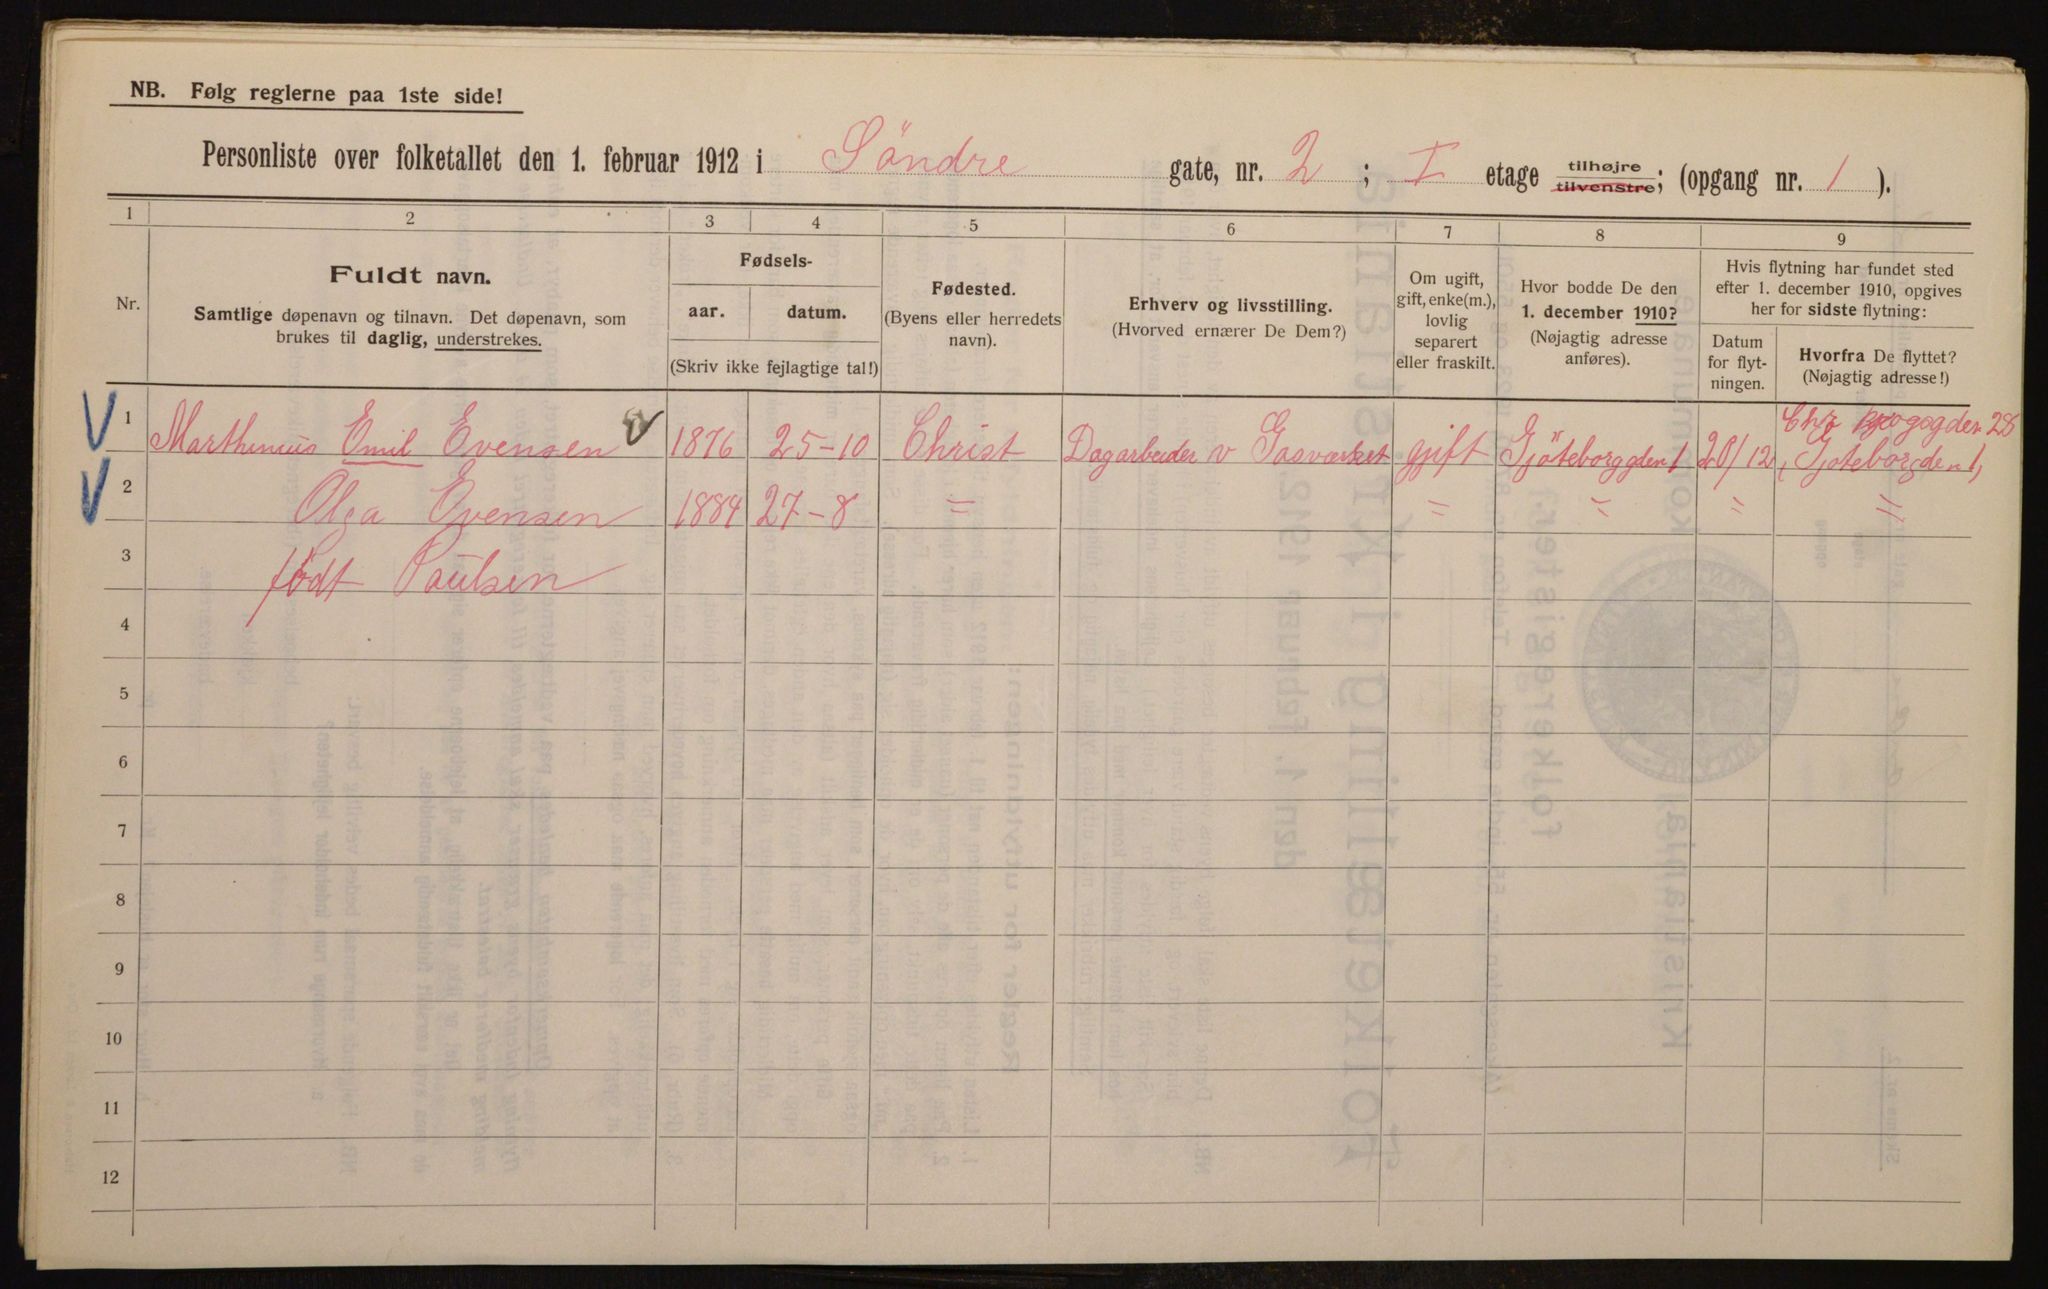 NB. Følg reglerne paa 1ste side!
Personliste over folketallet den 1. februar 1912 i Söndre gate, nr. 2 ; I etage tilhøjre tilvenstre; (opgang nr. 1 ).
1 2 3 4 5 6 7 8 9
Nr.
Fuldt navn.
Samtlige døpenavn og tilnavn. Det døpenavn, som
brukes til daglig, understrekes.
Fødsels-
aar. datum.
(Skriv ikke fejlagtige tal!)
Fødested.
(Byens eller herredets
navn).
Erhverv og livsstilling.
(Hvorved ernærer De Dem?)
Om ugift,
gift, enke(m.),
lovlig
separert
eller fraskilt.
Hvor bodde De den
1. december 1910?
(Nøjagtig adresse
anføres).
Hvis flytning har fundet sted
efter 1. december 1910, opgives
her for sidste flytning:
Datum
for flyt-
ningen.
Hvorfra De flyttet?
(Nøjagtig adresse!)
gden 28
1 Marthinius Emil Evensen 1876 25-10 Christ Dagarbeider v Gasværket gift Gjöteborggden 1 20/12 Gjöteborgden 1
2 Olga Evensen 1884 27-8 = = = = =
3 født Paulsen
4
5
6
7
8
9
10
11
12